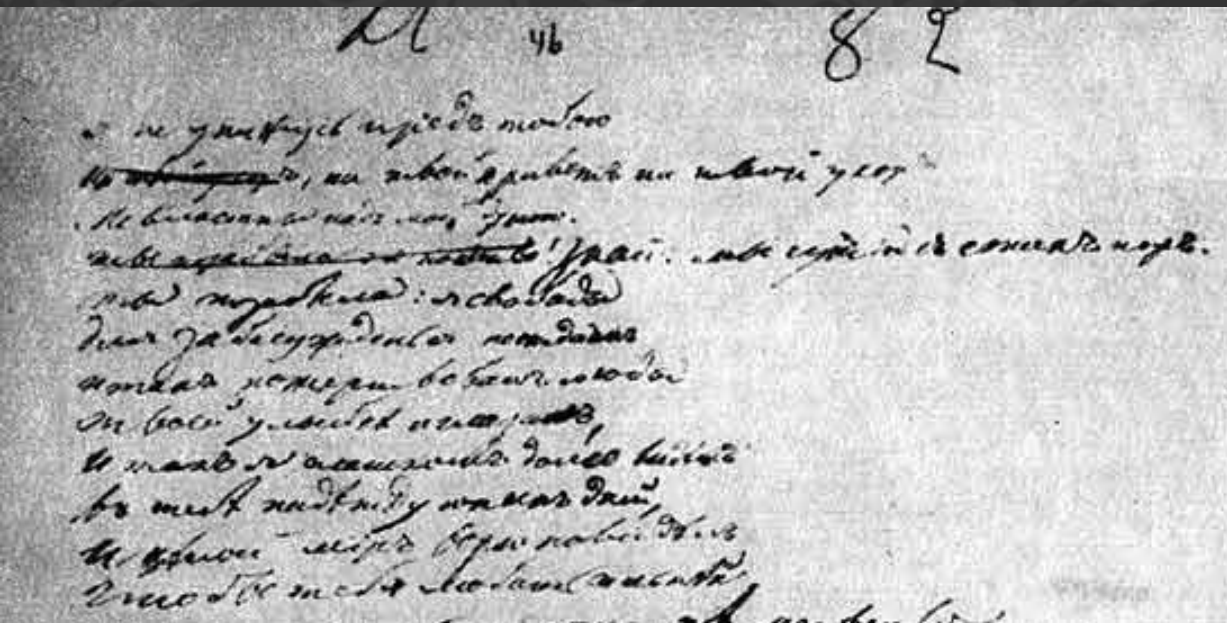 Я не унижусь предъ тобою
ни твой привѣтъ ни твой укор
Не властны надъ моей душою.
Знай: мы чужіе съ этихъ поръ.
Ты позабыла: я свободы
Для заблужденья не отдамъ
И такъ пожертвовалъ я годы
Твоей улыбкѣ и глазамъ,
И такъ я слишкомъ долго видѣлъ
Въ тебѣ надежду юныхъ дней,
И цѣлой міръ возненавидѣлъ
Чтобы тебя любить сильнѣй,